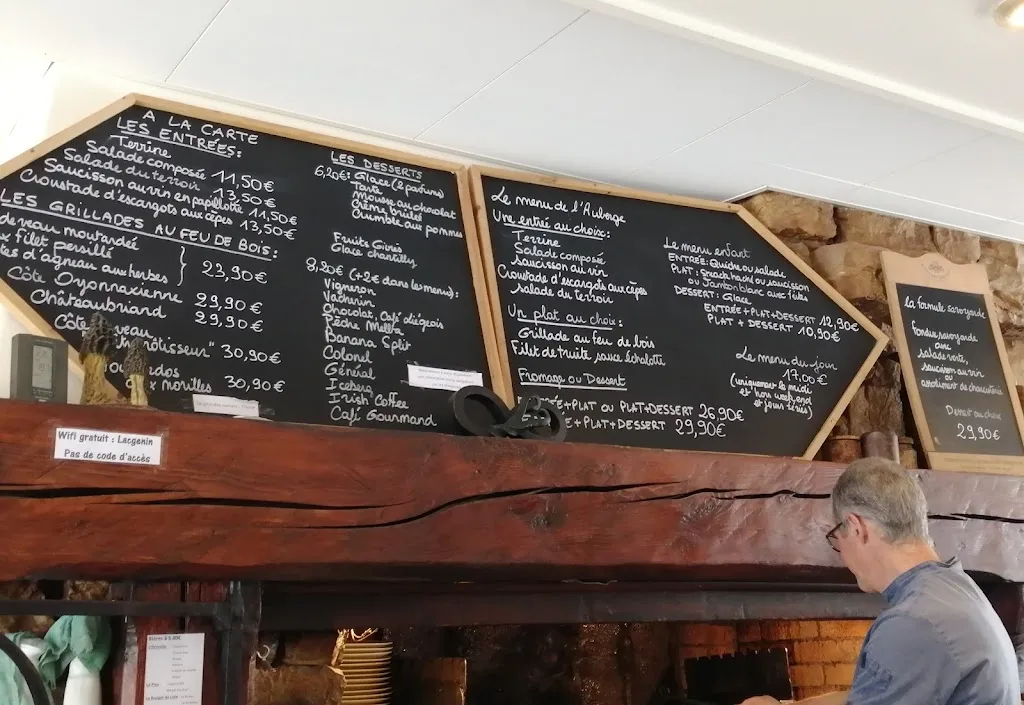 A LA CARTE
LES ENTRÉES:
Terrine
Salade composée 11,50€
Salade du terroir 13,50€
Saucisson au vin en papillotte 11,50€
Croustade d'escargots aux cèpes 13,50€
LES GRILLADES AU FEU DE BOIS:
de veau moutardée
filet persillé
d'agneau aux herbes
23,90€
Côte Oyonnaxienne 29,90€
Châteaubriand 29,90€
Côte veau
"rôtisseur" 30,90€
morilles 30,90€
LES DESSERTS
6,20€: Glace (2 parfums)
Tarte
Mousse au chocolat
Crème brulée
Crumble aux pommes
Fruits Givrés
Glace chantilly
8,20€ (+2€ dans les menus):
Vigneron
Vacherin
Chocolat, Café liégeois
Pêche Melba
Banana Split
Colonel
Général
Iceberg
Irish Coffee
Café Gourmand
Le menu de l'Auberge
Une entrée au choix:
Terrine
Salade composée
Saucisson au vin
Croustade d'escargots aux cèpes
Salade du terroir
Un plat au choix:
Grillade au feu de bois
Filet de truite sauce échalotte
Fromage ou Dessert
+PLAT OU PLAT+DESSERT 26,90€
+PLAT+DESSERT 29,90€
Le menu enfant
ENTRÉE: Quiche ou salade
PLAT: Steack haché ou saucisson
ou Jambon blanc avec frites
DESSERT: Glace
ENTRÉE+PLAT+DESSERT 12,90€
PLAT + DESSERT 10,90€
Le menu du jour
17,00€
(uniquement le midi
et hors week end
et jours fériés)
La formule savoyarde
Fondue savoyarde
avec
salade verte,
saucisson au vin
assortiment de charcuterie
Dessert au choix
29,90€
Wifi gratuit : Lacgenin
Pas de code d'accès